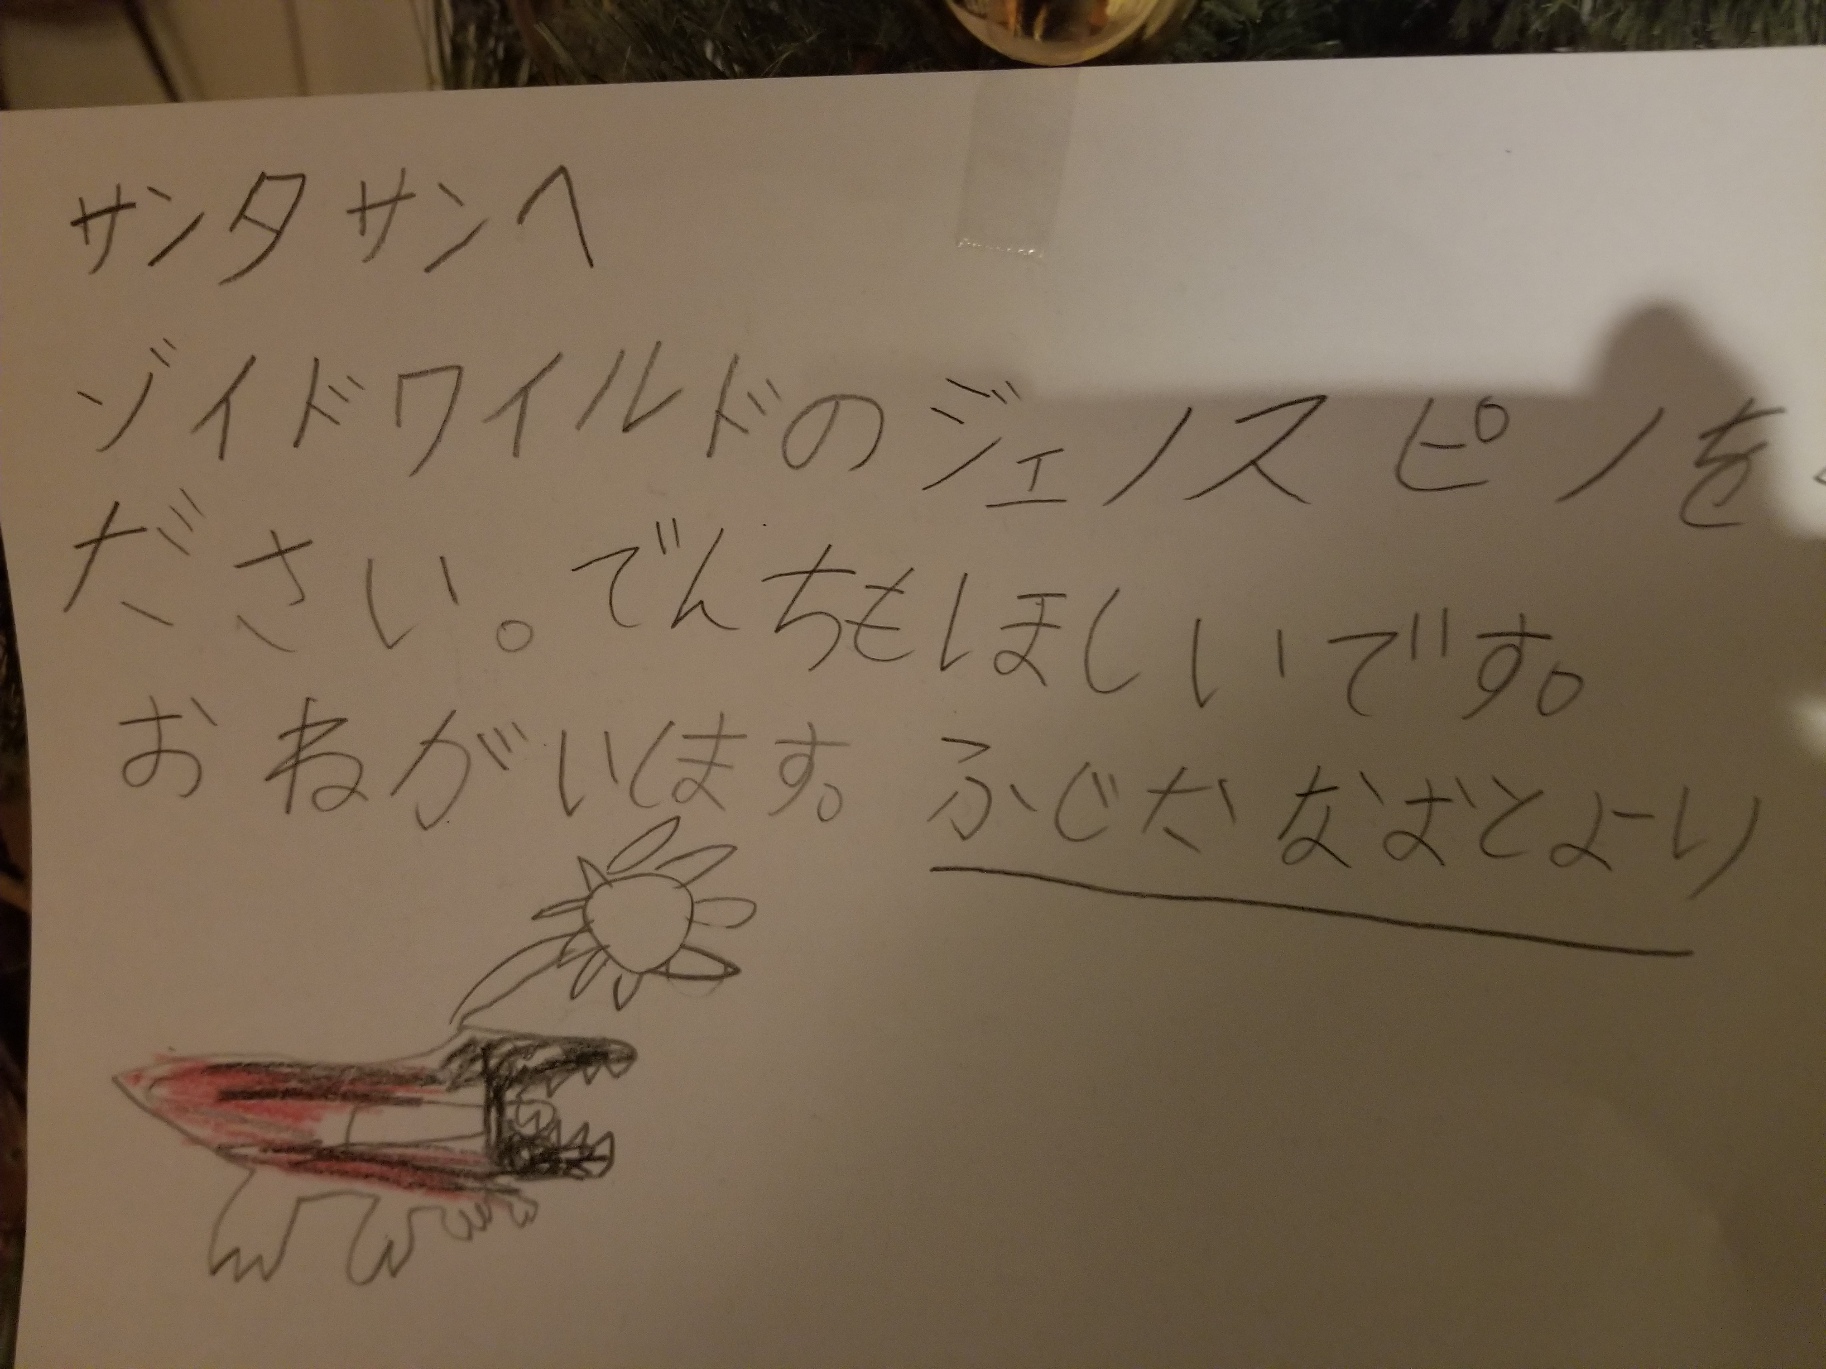 サンタサンへ
ゾイドワイルドのジェノスピノを
ださい。でんちもほしいです。
おねがいします。ふじたなおとより